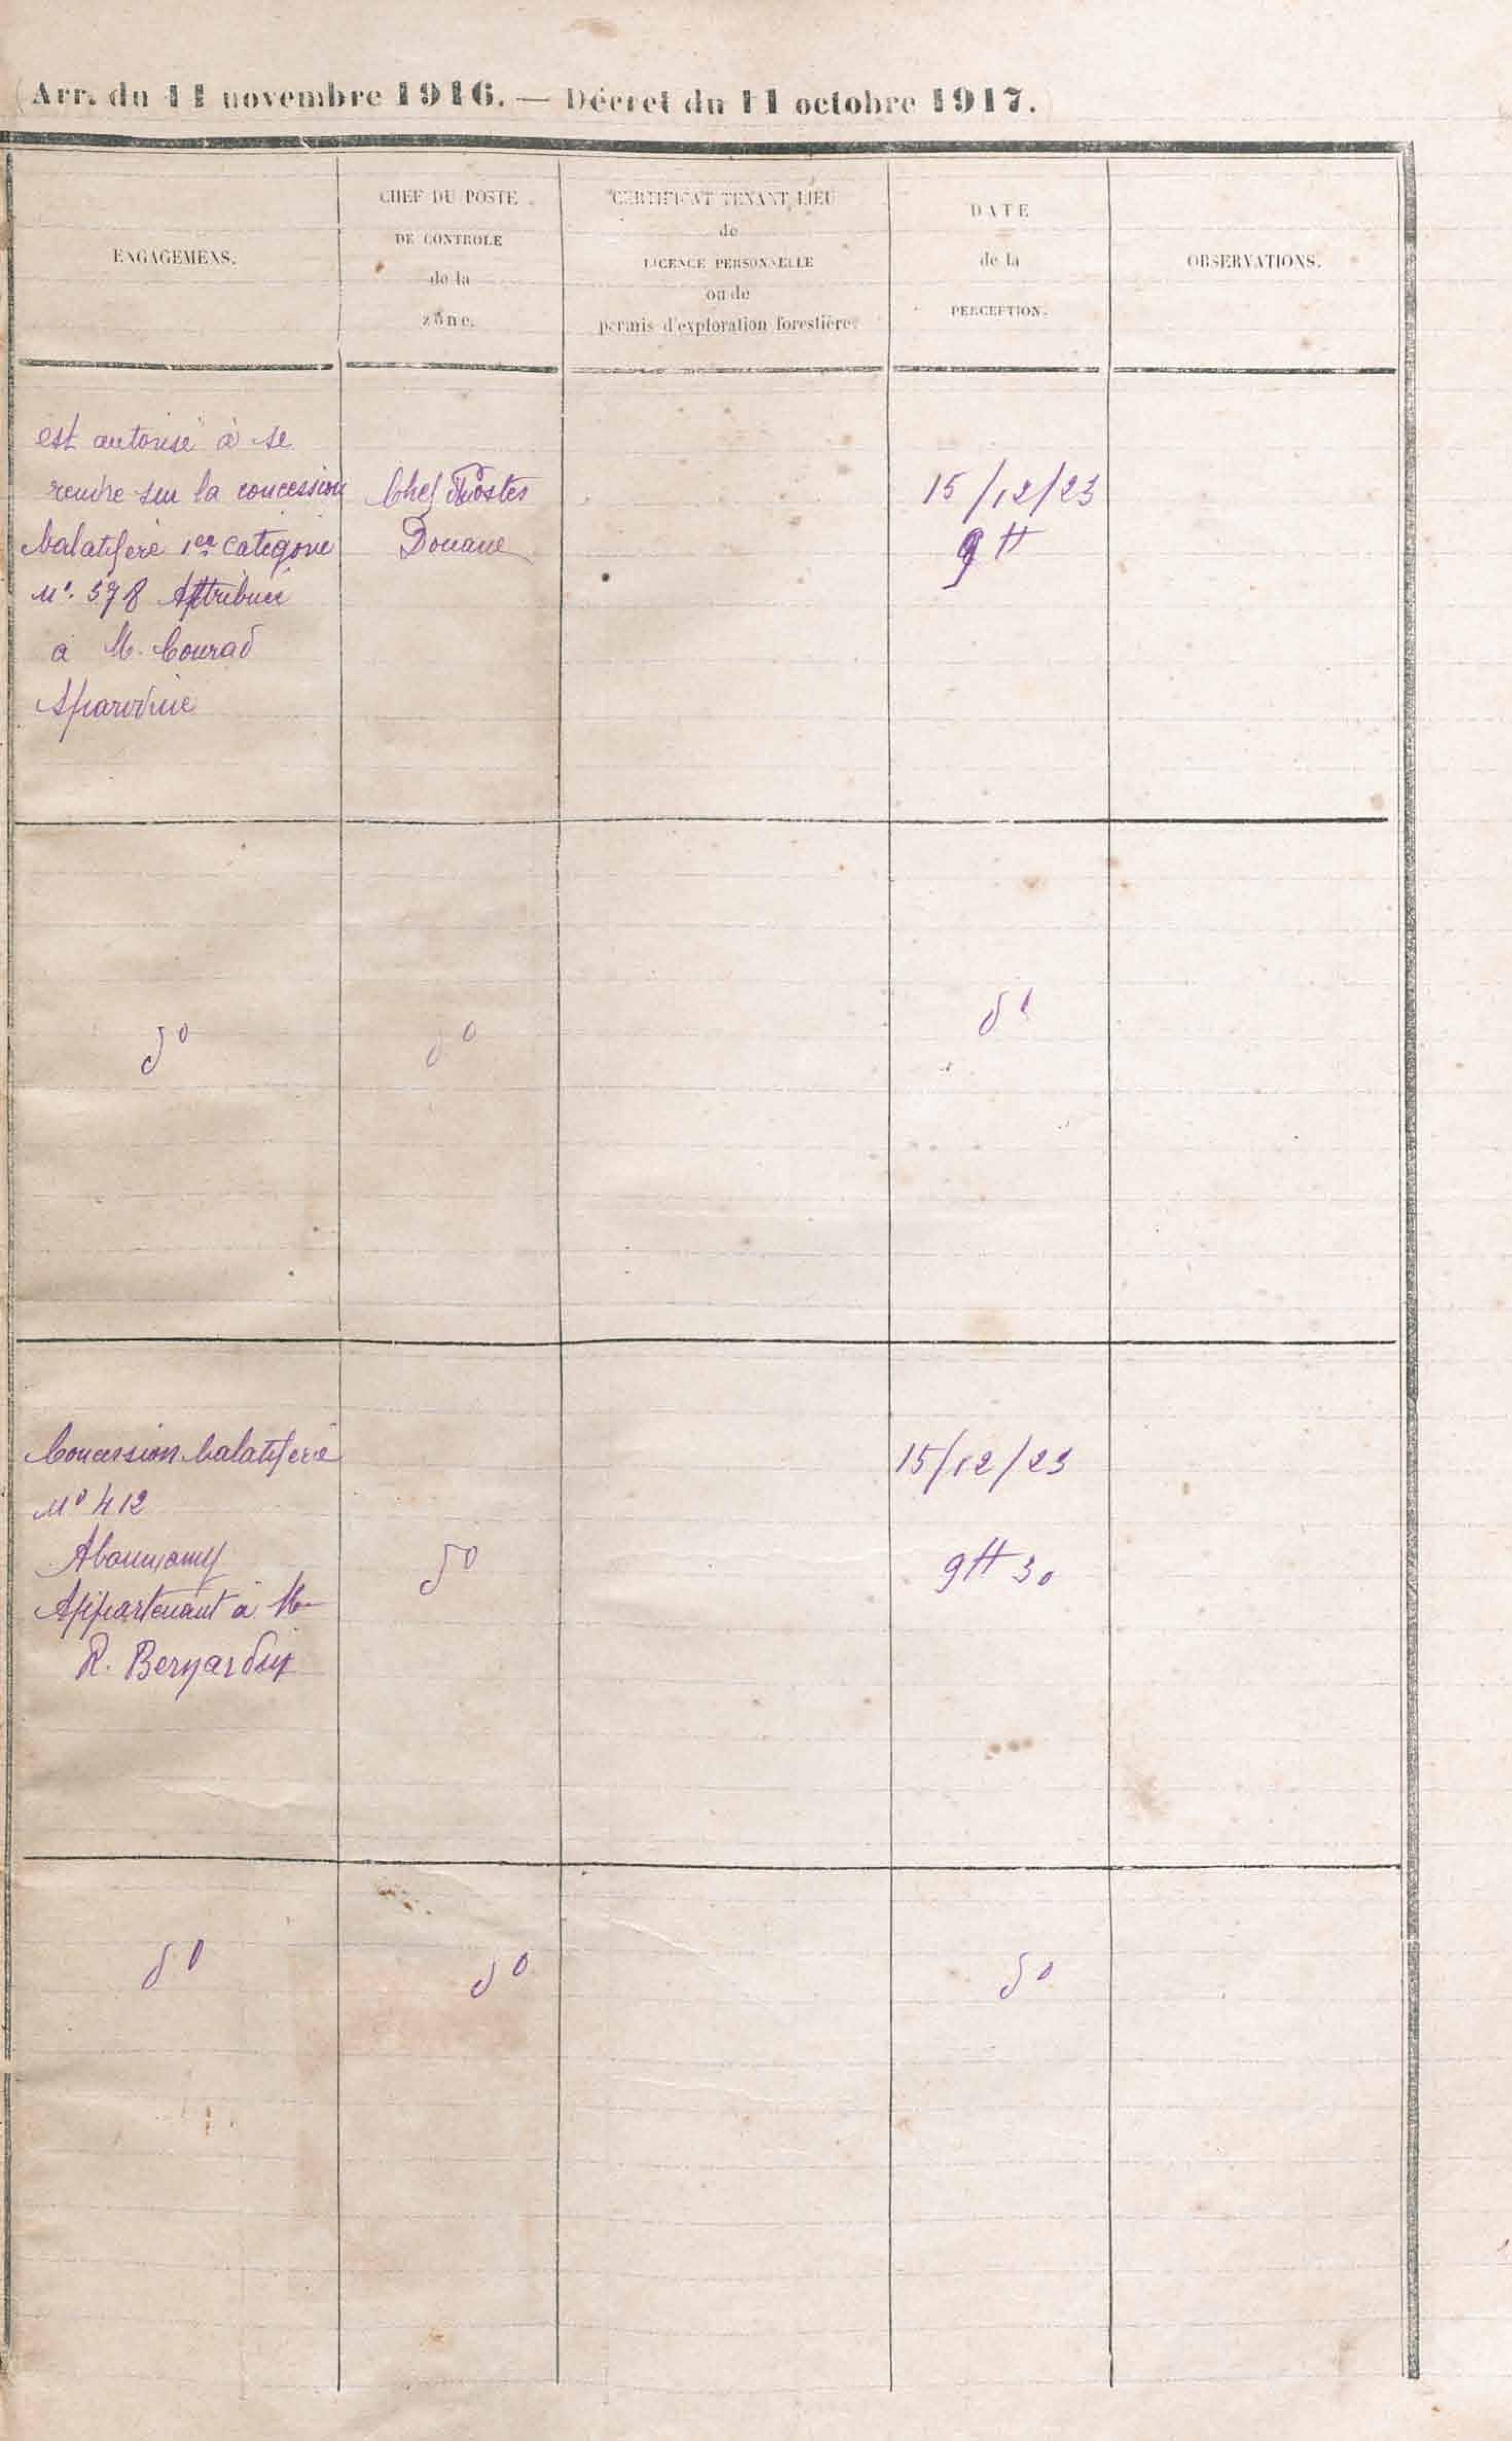 (Arr. du 11 novembre 1916. — Décret du 11 octobre 1917.
ENGAGEMENS.
CHEF DU POSTE
DE CONTROLE
de la
zône.
CERTIFICAT TENANT LIEU
de
LICENCE PERSONNELLE
ou de
permis d'exploration forestière.
DATE
de la
PERCEPTION.
OBSERVATIONS.
est autorisé à se
rendre sur la concession
balatifère 1ère catégorie
N°. 578 Attribuée
à M. Conrad
Chef Postes
Douane
15/12/23
9H
d°
d°
d°
Concession balatifère
N° 412
Abounamy
Appartenant à M
R. Bernardin
d°
15/12/23
9H30
d°
d°
d°